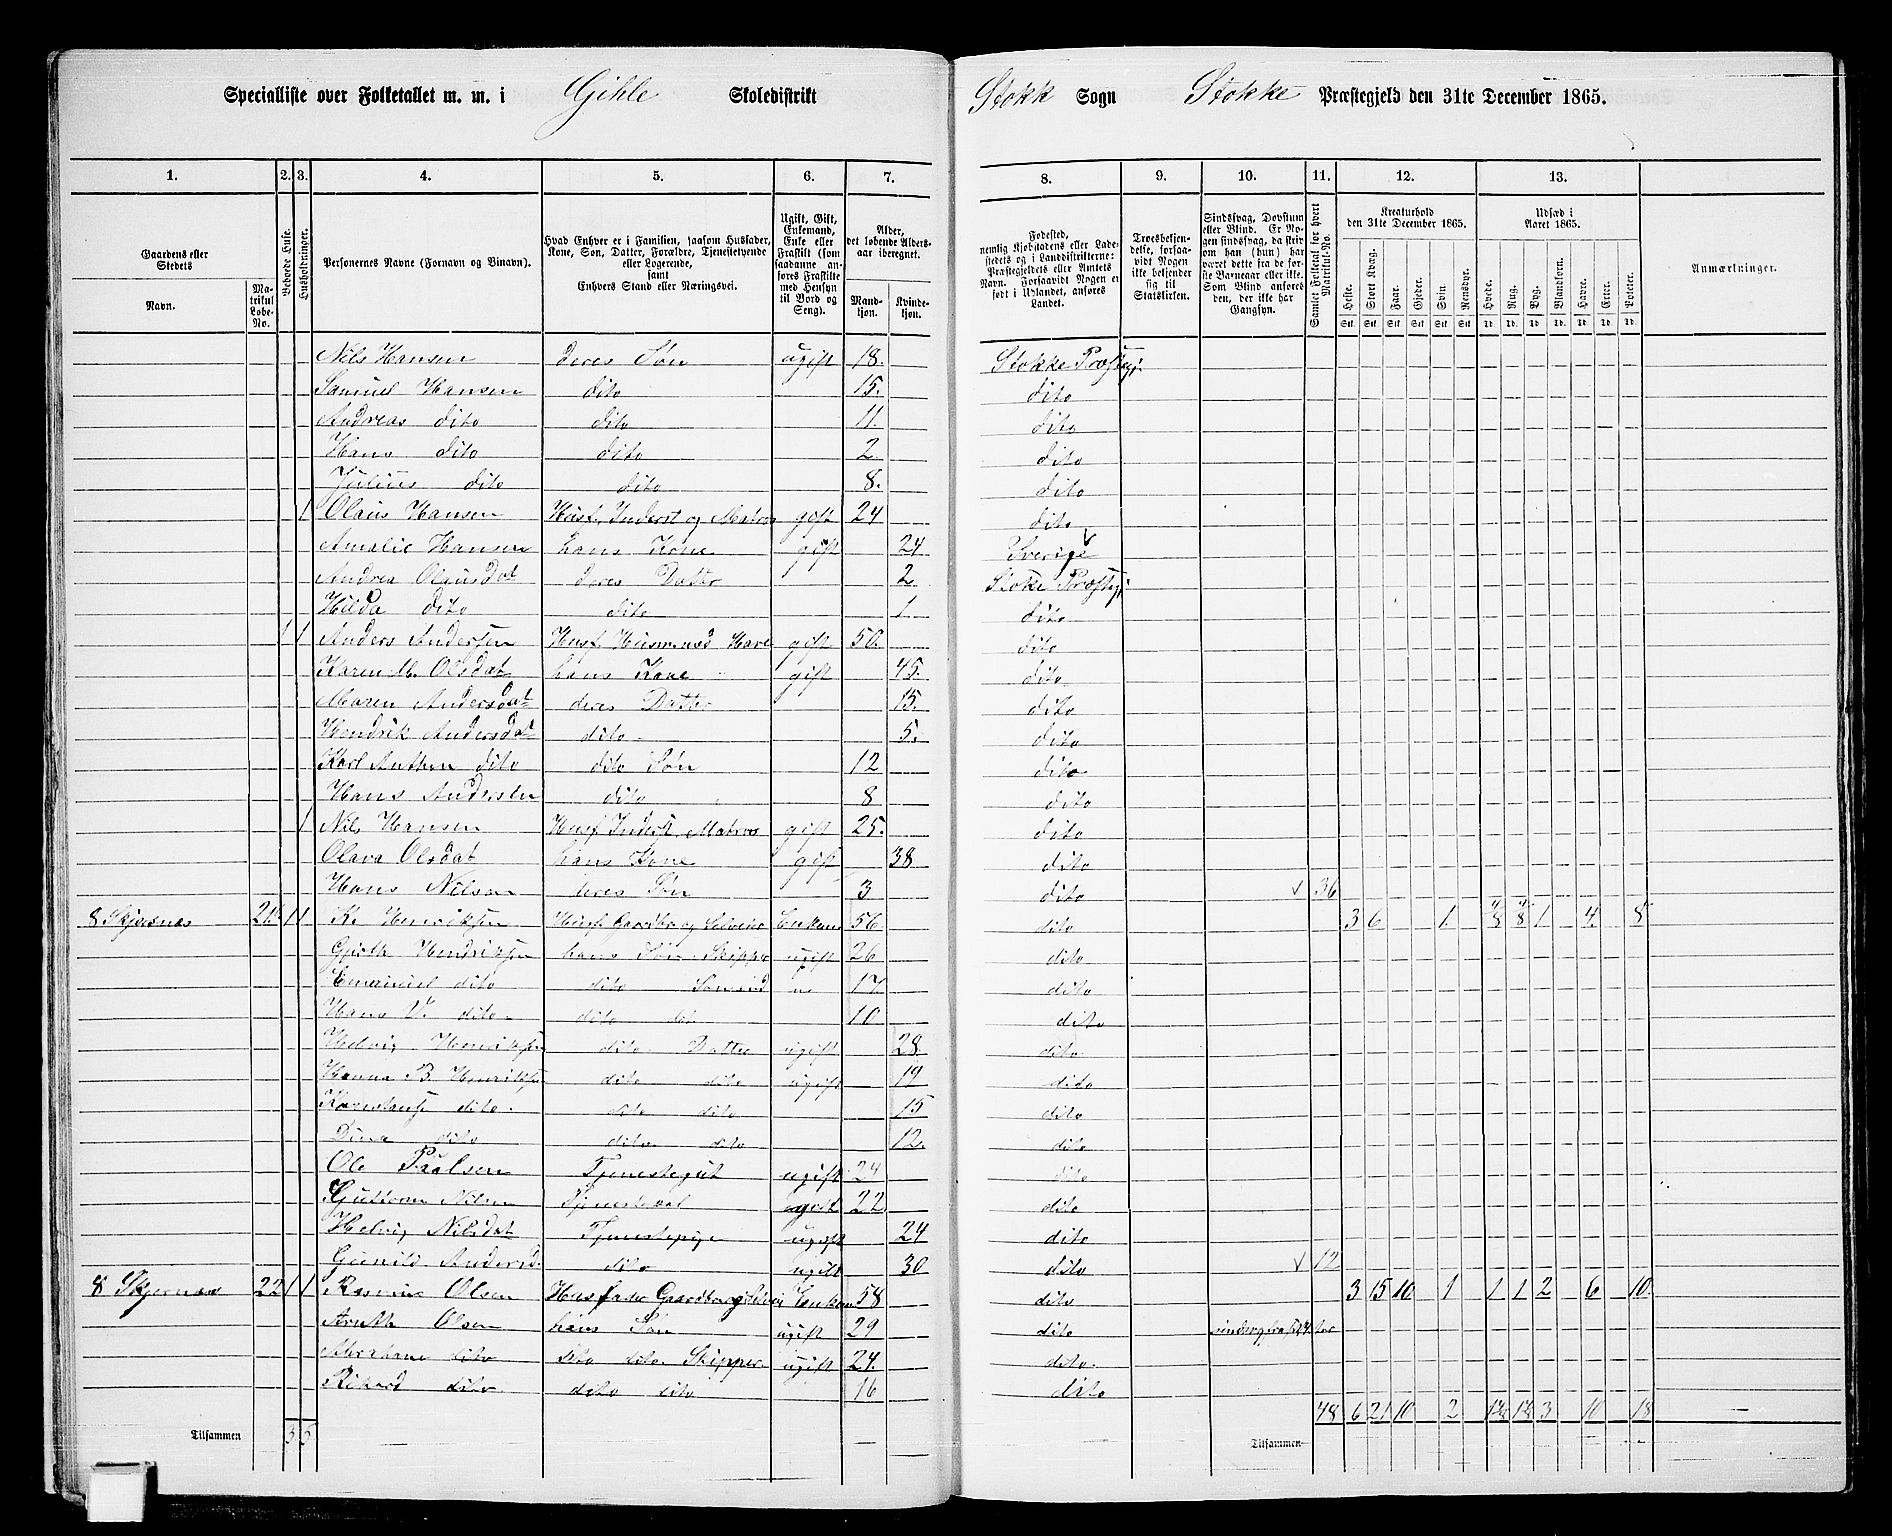 Specialliste over Folketallet m. m. i Gihle Skoledistrikt Stokk Sogn Stokke Præstegjeld den 31te December 1865.
1. 2. 3. 4. 5. 6. 7. 8. 9. 10. 11. 12. 13.
Gaardens eller Stedets
Navn.
Matrikul Løbe-No.
Beboede Huse.
Husholdninger.
Personernes Navne (Fornavn og Tilnavn).
Hvad Enhver er i Familien, saasom Husfader, Kone, Søn, Datter, Forældre, Tjenestetyende eller Logerende, samt Enhvers Stand eller Næringsvei.
Ugift, Gift, Enkemand, Enke eller Fraskilt (som saadanne anføres Fraskilte med Hensyn til Bord og Seng).
Alder, det løbende Aldersaar iberegnet.
Mandkjøn. Kvindekjøn.
Fødested, nemlig Kjøbstadens eller Ladestedets og i Landdistrikterne: Præstegjeldets eller Amtets Navn. Forsaavidt Nogen er født i Udlandet, anføres Landet.
Troesbekjendelse, forsaavidt Nogen ikke bekjender sig til Statskirken.
Sindssvag, Døvstum eller Blind. Er Nogen sindssvag, da skriv om han (hun) har været dette fra de første Barneaar eller ikke. Som Blind anføres den, der ikke har Gangsyn.
Samlet Folketal for hvert Matrikul-No.
Kreaturhold den 31te December 1865.
Heste. Stort Kvæg. Faar. Gjeder. Svin. Rensdyr.
Udsæd i Aaret 1865.
Hvede. Rug. Byg. Blandkorn. Havre. Erter. Poteter.
Anmærkninger.
Nils Hansen deres Søn ugift 18. Stokke Præstegj.
Samuel Hansen dito 15. dito
Andreas dito dito 11. dito
Hans dito dito 2. dito
Julius dito dito 8. dito
1 Olaus Hansen Husf. Inderst og Matros gift 24 dito
Amalie Hansen hans Kone gift 24 Sverige
Andrea Olausdat deres Datter 2. Stoke Præstegj
Hilda dito dito 1. dito
1 1 Anders Andersen Husf. Husmand gift 50. dito
Karen M. Olsdat hans Kone gift 45. dito
Maren Andersdat deres Datter 15. dito
Hendrik Andersdat dito 5. dito
Karl Anthon dito dito Søn 12 dito
Hans Andersen dito 8 dito
1 Nils Hansen Husf. Inderst Matros gift 25. dito
Olava Olsdat hans Kone gift 38 dito
Hans Nilsen deres Søn 3 dito 36
8 Skjærsnæs 21 1 1 K. Henriksen Husf. Gaardbr og Selveier Enkem 56 dito 3 6 1 1 4 8
Hendriksen hans Søn Skipper ugift 26 dito
Emanuel dito dito 17 dito
Hans V. dito dito 10 dito
Helvig Henriksen dito Datter ugift 28. dito
Hanna B Henriksen dito dito ugift 19 dito
dito dito dito 15 dito
Dina dito dito dito 12. dito
Ole Paalsen Tjenestegut ugift 24 dito
Guttorm Nilsen ugift 22 dito
Helvig Nilsdat Tjenestepige ugift 24 dito
Gunild Andersd. dito ugift 30 dito 12
8 Skjersnæs 22 1 1 Rasmus Olsen Husfader Gaardbr og Selvei Enkem 58 dito 3 15 10 1 1 1 2 6 10
Olsen hans Søn ugift 29 dito
Abraham dito dito dito Skipper ugift 24. dito
Rikard dito dito dito 16 dito
48 6 21 10 2 3 10 18
Tilsammen 3 5 Tilsammen